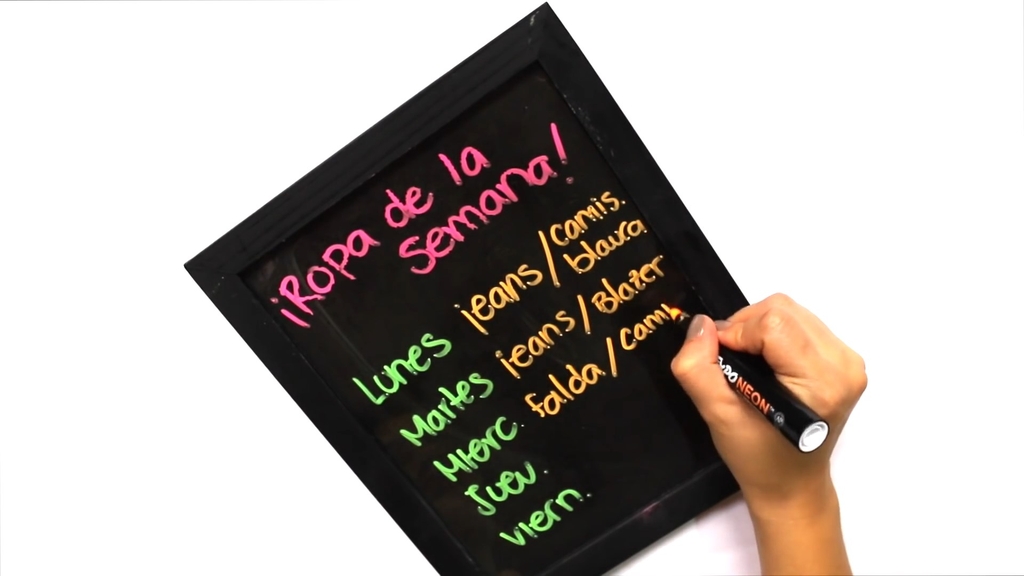 ¡Ropa de la
semana!
Lunes jeans/camis.
blanca
Martes jeans/Blazer
Mierc. falda/cami
Juev.
viern.
EXPO NEON™